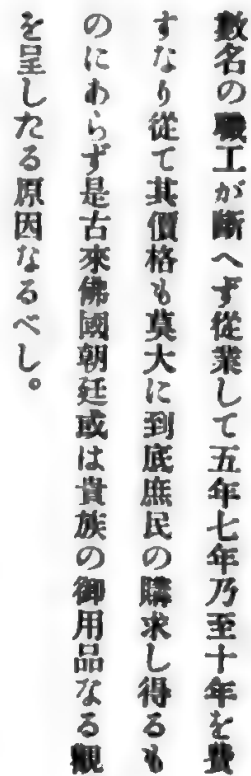 數名の職工が斷へず從業して五年七年乃至十年を費
すなり從て其價格も莫大に到底庶民の購求し得るも
のにわらず是古來佛國朝廷或は貴族の御用品なる觀
を呈したる原因なるべし。